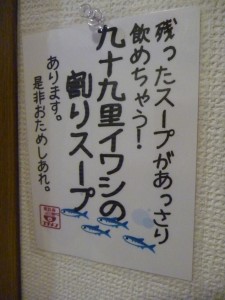 残ったスープがあっさり
飲めちゃう!
九十九里イワシの
割りスープ
あります。
是非おためしあれ。